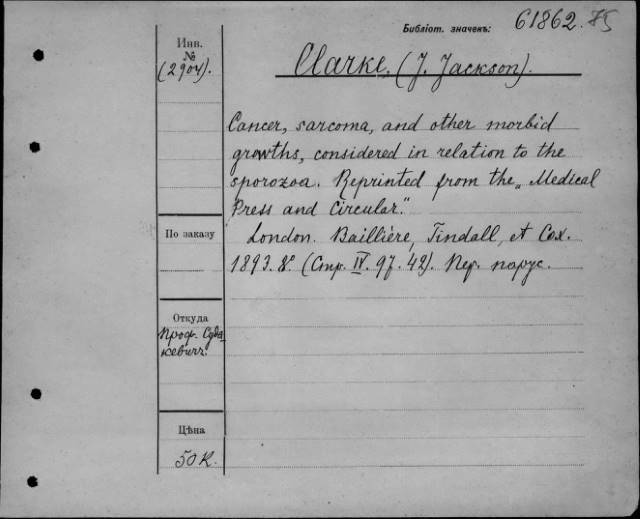 Библіот. значекъ: 61862. 75
Инв.
№
(2904).
Clarke, (J. Jackson).
Cancer, sarcoma, and other morbid
growths, considered in relation to the
sporozoa. Reprinted from the „Medical
Press and Circular."
По заказу
London. Baillière, Tindall, et Cox.
1893. 8º. (Стр. IV. 97. 42). Пер. парус.
Откуда
Проф. Суда-
кевичъ.
Цѣна
50 К.